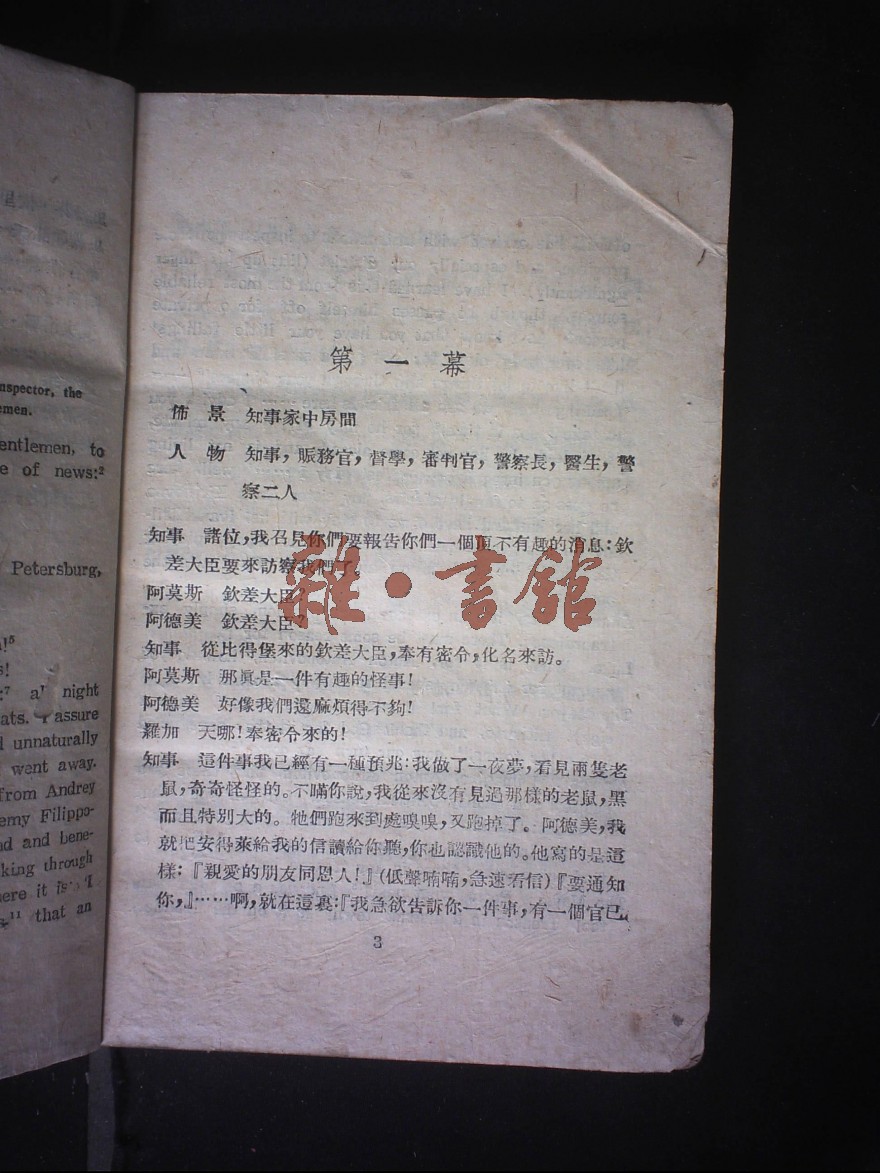 nspector, the
emen.
entlemen, to
e of news:²
Petersburg,
!⁵
s!
:⁷ night
ats. assure
unnaturally
went away.
from Andrey
emy Filippo-
nd and bene-
king through
here it is: 'I
¹¹ that an
第一幕
佈景 知事家中房間
人物 知事，賑務官，督學，審判官，警察長，醫生，警
察二人
知事 諸位，我召見你們要報告你們一個頂不有趣的消息：欽
差大臣要來訪察我們了。
阿莫斯 欽差大臣？
阿德美 欽差大臣？
知事 從比得堡來的欽差大臣，奉有密令，化名來訪。
阿莫斯 那眞是一件有趣的怪事！
阿德美 好像我們還麻煩得不夠！
羅加 天哪！奉密令來的！
知事 這件事我已經有一種預兆：我做了一夜夢，看見兩隻老
鼠，奇奇怪怪的。不瞞你說，我從來沒有見過那樣的老鼠，黑
而且特別大的。牠們跑來到處嗅嗅，又跑掉了。阿德美，我
就把安得萊給我的信讀給你聽，你也認識他的。他寫的是這
樣：『親愛的朋友同恩人！』(低聲喃喃，急速看信)『要通知
你，』……啊，就在這裏：『我急欲告訴你一件事，有一個官已
3
雜·書館